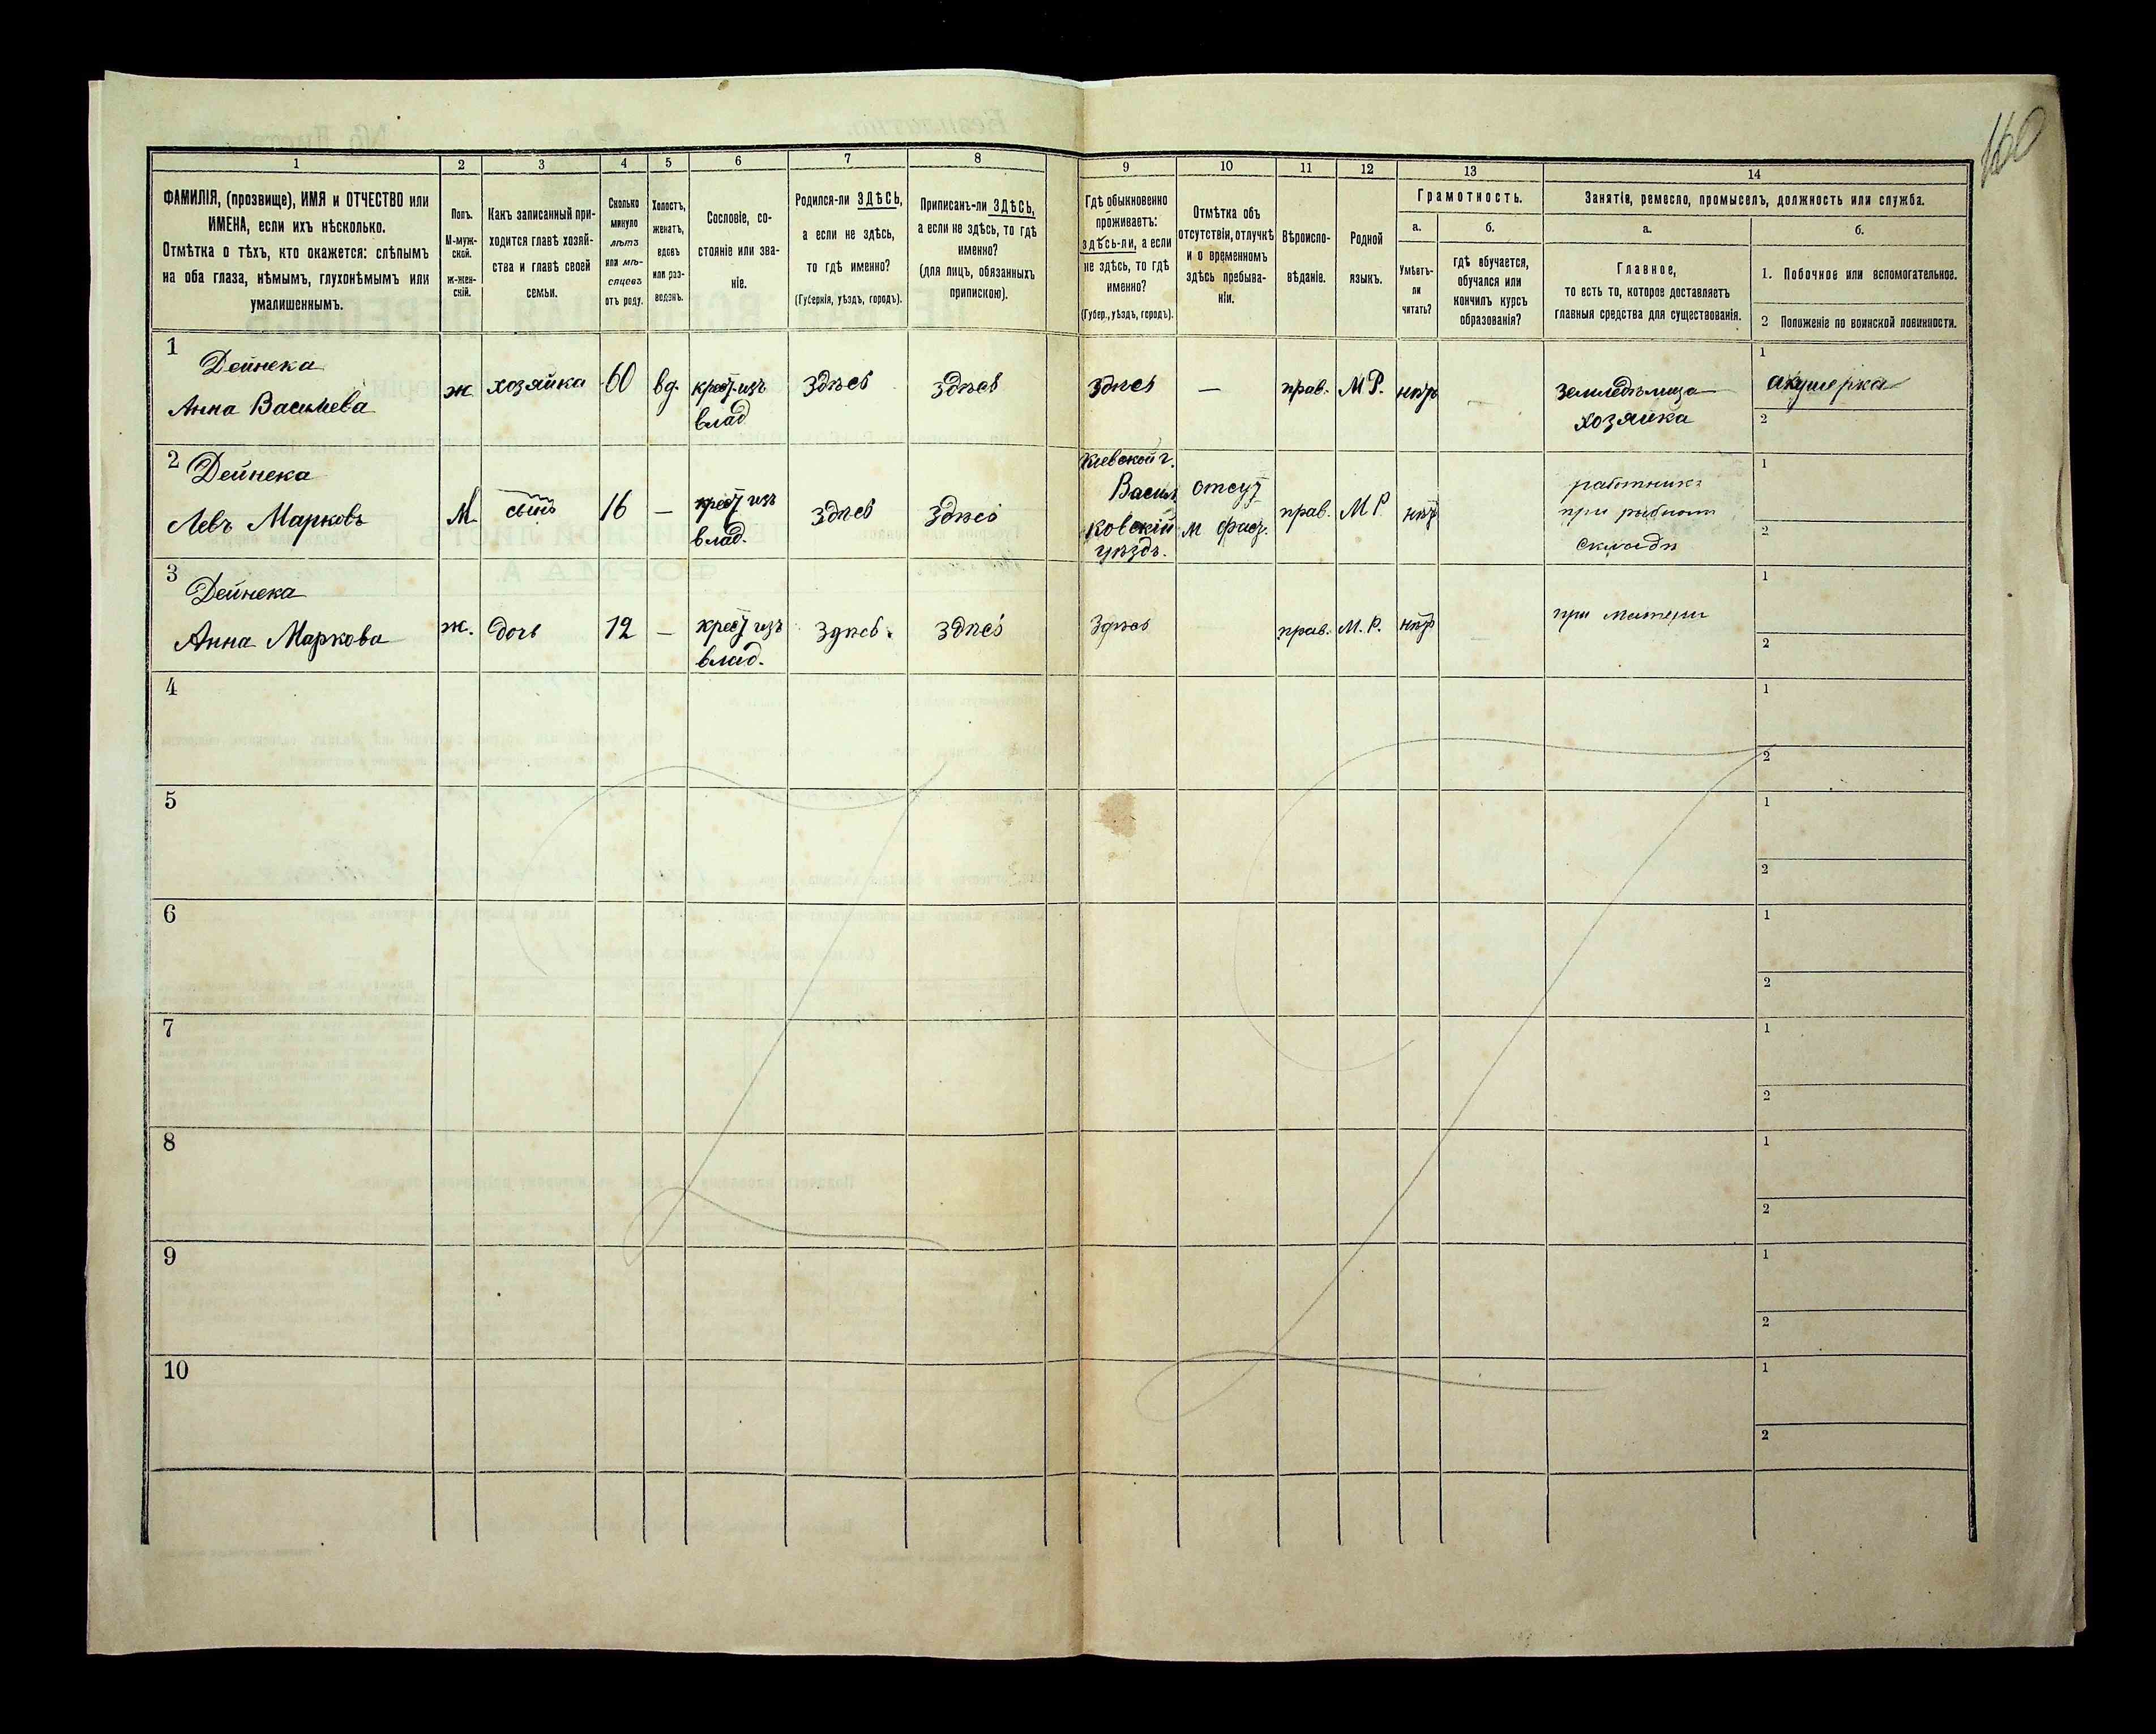 160
1 2 3 4 5 6 7 8 9 10 11 12 13 14
ФАМИЛІЯ, (прозвище), ИМЯ и ОТЧЕСТВО или
ИМЕНА, если ихъ нѣсколько.
Отмѣтка о тѣхъ, кто окажется: слѣпымъ
на оба глаза, нѣмымъ, глухонѣмымъ или
умалишеннымъ.
Полъ.
М-муж-
ской.
ж-жен-
скій.
Какъ записанный при-
ходится главѣ хозяй-
ства и главѣ своей
семьи.
Сколько
минуло
лѣтъ
или мѣ-
сяцевъ
отъ роду.
Холостъ,
женатъ,
вдовъ
или раз-
веденъ.
Сословіе, со-
стояніе или зва-
ніе.
Родился-ли ЗДѢСЬ,
а если не здѣсь,
то гдѣ именно?
(Губернія, уѣздъ, городъ).
Приписанъ-ли ЗДѢСЬ,
а если не здѣсь, то гдѣ
именно?
(для лицъ, обязанныхъ
припискою).
Гдѣ обыкновенно
проживаетъ:
здѣсь-ли, а если
не здѣсь, то гдѣ
именно?
(Губер., уѣздъ, городъ).
Отмѣтка объ
отсутствіи, отлучкѣ
и о временномъ
здѣсь пребыва-
ніи.
Вѣроиспо-
вѣданіе.
Родной
языкъ.
Грамотность.
а.
Умѣетъ-
ли
читать?
б.
гдѣ обучается,
обучался или
кончилъ курсъ
образованія?
Занятіе, ремесло, промыселъ, должность или служба.
а.
Главное,
то есть то, которое доставляетъ
главныя средства для существованія.
б.
1. Побочное или вспомогательное.
2 Положеніе по воинской повинности.
1
Дейнека
Анна Васильева
ж
хозяйка
60
вд.
крест изъ
влад
Здѣсь
Здѣсь
Здѣсь
—
прав.
М Р.
нѣт
—
Земледѣлица
хозяйка
1
акушерка
2
2
Дейнека
Левъ Марковъ
М
сынъ
16
—
крест изъ
влад.
Здѣсь
Здѣсь
Кіевской г.
Васил
ковскій
уѣздъ.
отсут
прав.
М Р
нѣт
работникъ
при рыбном
складѣ
1
2
3
Дейнека
Анна Маркова
ж.
дочь
12
—
крест изъ
влад.
Здѣсь.
Здѣсь
Здѣсь
прав.
М. Р.
нѣт
—
при матери
1
2
4
1
2
5
1
2
6
1
2
7
1
2
8
1
2
9
1
2
10
1
2